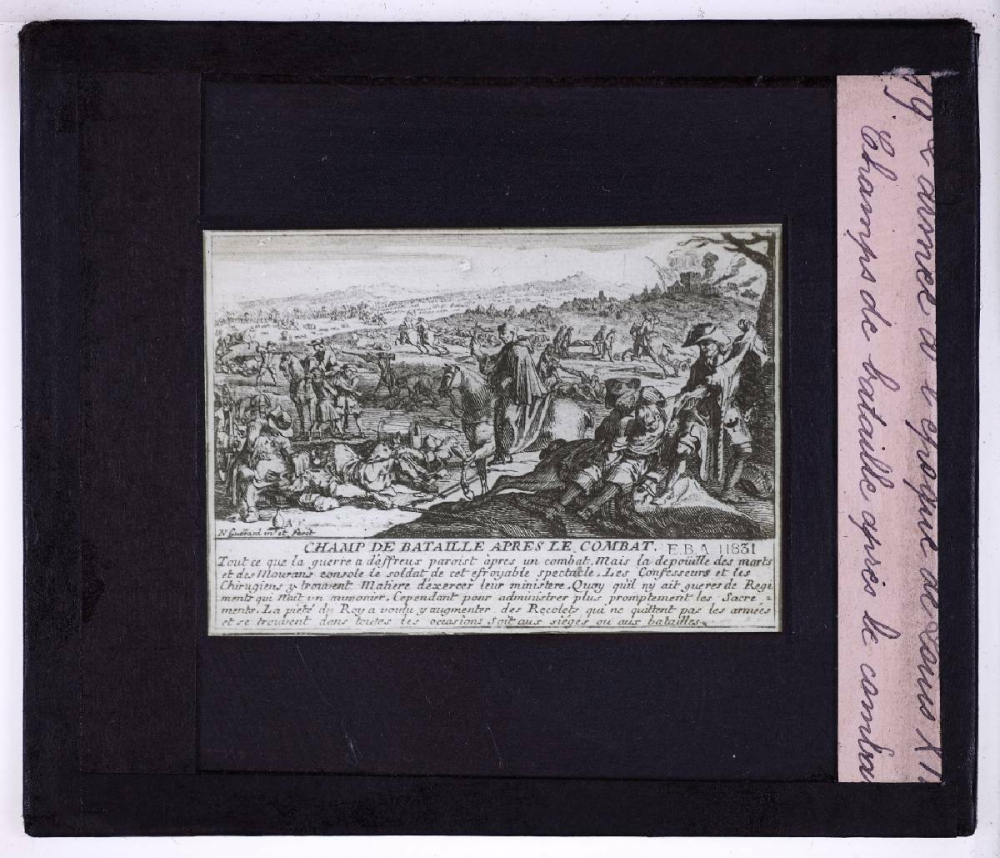 N Guerard in et fecit
CHAMP DE BATAILLE APRES LE COMBAT. E.B.A 11831
Tout ce que la guerre a d'affreux paroist apres un combat, Mais la depouille des morts
et des Mourans console le soldat de cet efroyable spectacle. Les Confesseurs et les
Chirugiens y trouvent Matiere d'exercer leur ministere. Quoy quil ny ait gueres de Regi
ments qui n'ait un aumonier. Cependant pour administrer plus promptement les Sacre =
ments. La pieté du Roy a voulu y augmenter des Recolets qui ne quittent pas les armées
et se trouvent dans toutes les occasions soit aux sièges ou aux batailles.
99 L'armée à l'époque de Louis XI
Champs de bataille après le combat